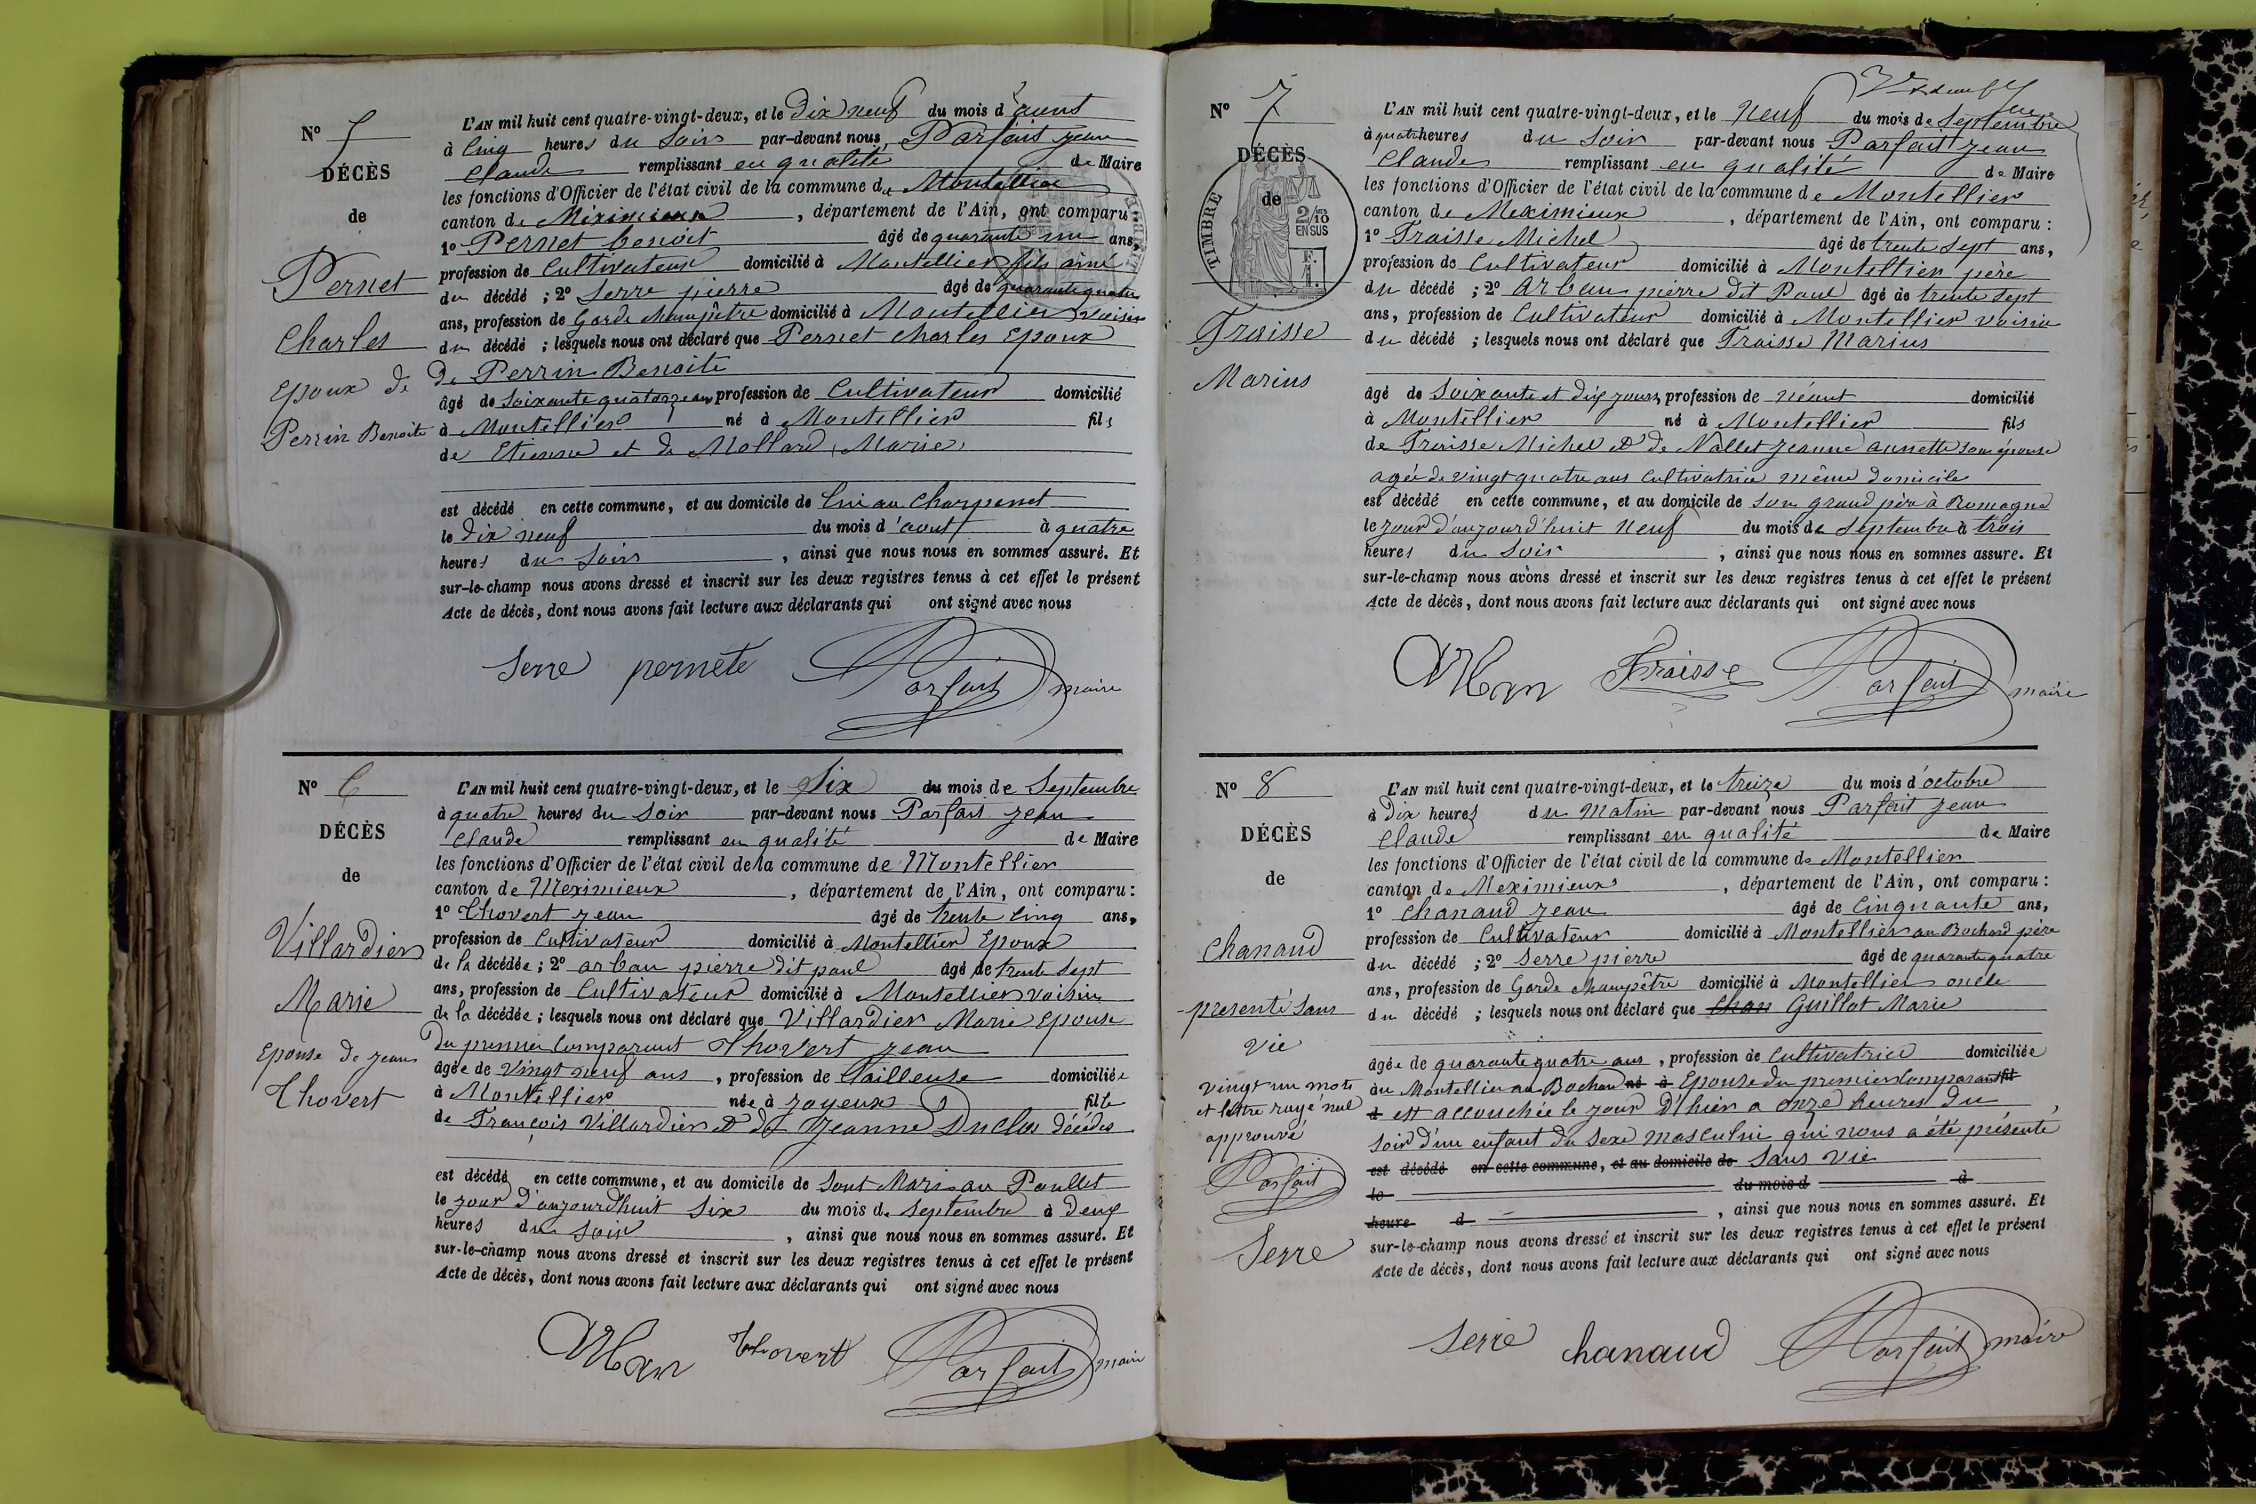 N° 5
DÉCÈS
de
Pernet
Charles
Epoux de
Perrin Benoite
L'AN mil huit cent quatre-vingt-deux, et le Dix neuf du mois d'aout
à Cinq heures du Soir par-devant nous, Parfait jean
Claude remplissant en qualité de Maire
les fonctions d'Officier de l'état civil de la commune de Montellier
canton de Méximieux, département de l'Ain, ont comparu :
1° Pernet benoit âgé de quarante un ans,
profession de Cultivateur domicilié à Montellier fils ainé
du décédé ; 2° Serre pierre âgé de quarante quatre
ans, profession de Garde champêtre domicilié à Montellier voisin
du décédé ; lesquels nous ont déclaré que Pernet Charles Epoux
De Perrin Benoite
âgé de Soixante quatorze ans, profession de Cultivateur domicilié
à Montellier né à Montellier fils
de Etienne et de Mollard Marie,
est décédé en cette commune, et au domicile de lui au Charpenet
le Dix neuf du mois d'aout à quatre
heures du Soir, ainsi que nous nous en sommes assuré. Et
sur-le-champ nous avons dressé et inscrit sur les deux registres tenus à cet effet le présent
Acte de décès, dont nous avons fait lecture aux déclarants qui ont signé avec nous
Serre pernete Parfait maire
N° 6
DÉCÈS
de
Villardier
Marie
Epouse de jean
Thovert
L'AN mil huit cent quatre-vingt-deux, et le Six du mois de Septembre
à quatre heures du Soir par-devant nous Parfait jean
Claude remplissant en qualité de Maire
les fonctions d'Officier de l'état civil de la commune de Montellier
canton de Meximieux, département de l'Ain, ont comparu :
1° Thovert jean âgé de trente Cinq ans,
profession de Cultivateur domicilié à Montellier Epoux
de la décédée ; 2° arban pierre dit paul âgé de trente Sept
ans, profession de Cultivateur domicilié à Montellier voisin
de la décédée ; lesquels nous ont déclaré que Villardier Marie Epouse
Du premier Comparant Thovert jean
âgée de Vingt neuf ans, profession de Tailleuse domiciliée
à Montellier née à joyeux fille
de François Villardier et de Jeanne Duclos décédés
est décédé en cette commune, et au domicile de Sont Mari au Poullet
le jour d'aujourdhuit Six du mois de Septembre à Deux
heures du Soir, ainsi que nous nous en sommes assuré. Et
sur-le-champ nous avons dressé et inscrit sur les deux registres tenus à cet effet le présent
Acte de décès, dont nous avons fait lecture aux déclarants qui ont signé avec nous
Arban thovert Parfait maire
N° 7
DÉCÈS
de
TIMBRE
2/10 EN SUS
F. 1.
Fraisse
Marius
L'AN mil huit cent quatre-vingt-deux, et le Neuf du mois de Septembre
à quatre heures du Soir par-devant nous Parfait jean
Claude remplissant en qualité de Maire
les fonctions d'Officier de l'état civil de la commune de Montellier
canton de Meximieux, département de l'Ain, ont comparu :
1° Fraisse Michel âgé de trente Sept ans,
profession de Cultivateur domicilié à Montellier père
du décédé ; 2° Arban pierre dit Paul âgé de trente Sept
ans, profession de Cultivateur domicilié à Montellier voisin
du décédé ; lesquels nous ont déclaré que Fraisse Marius
âgé de Soixante et dix jours, profession de néant domicilié
à Montellier né à Montellier fils
de Fraisse Michel et de Nallet jeanne annette son épouse
agée de vingt quatre ans Cultivatrice même domicile
est décédé en cette commune, et au domicile de son grand père à Romagne
le jour d'aujourd'huit Neuf du mois de Septembre à trois
heures du Soir, ainsi que nous nous en sommes assuré. Et
sur-le-champ nous avons dressé et inscrit sur les deux registres tenus à cet effet le présent
Acte de décès, dont nous avons fait lecture aux déclarants qui ont signé avec nous
Arban Fraisse Parfait maire
N° 8
DÉCÈS
de
Chanaud
présenté Sans
vie
vingt un mots
et lettre rayé nul
approuvé
Parfait
Serre
L'AN mil huit cent quatre-vingt-deux, et le treize du mois d'octobre
à Dix heures du Matin par-devant nous Parfait jean
Claude remplissant en qualité de Maire
les fonctions d'Officier de l'état civil de la commune de Montellier
canton de Meximieux, département de l'Ain, ont comparu :
1° Chanaud jean âgé de Cinquante ans,
profession de Cultivateur domicilié à Montellier au Bochard père
du décédé ; 2° Serre pierre âgé de quarante quatre
ans, profession de Garde champêtre domicilié à Montellier oncle
du décédé ; lesquels nous ont déclaré que Chan Guillot Marie
âgée de quarante quatre ans, profession de Cultivatrice domiciliée
au Montellier au Bochard né à Epouse du premier Comparant fil
d est accouchée le jour D'hier a onze heures du
Soir d'un enfant du Sexe Masculin qui nous a été présenté
est décédé en cette commune, et au domicile de Sans Vie
le du mois d à
heure d, ainsi que nous nous en sommes assuré. Et
sur-le-champ nous avons dressé et inscrit sur les deux registres tenus à cet effet le présent
Acte de décès, dont nous avons fait lecture aux déclarants qui ont signé avec nous
Serre chanaud Parfait maire